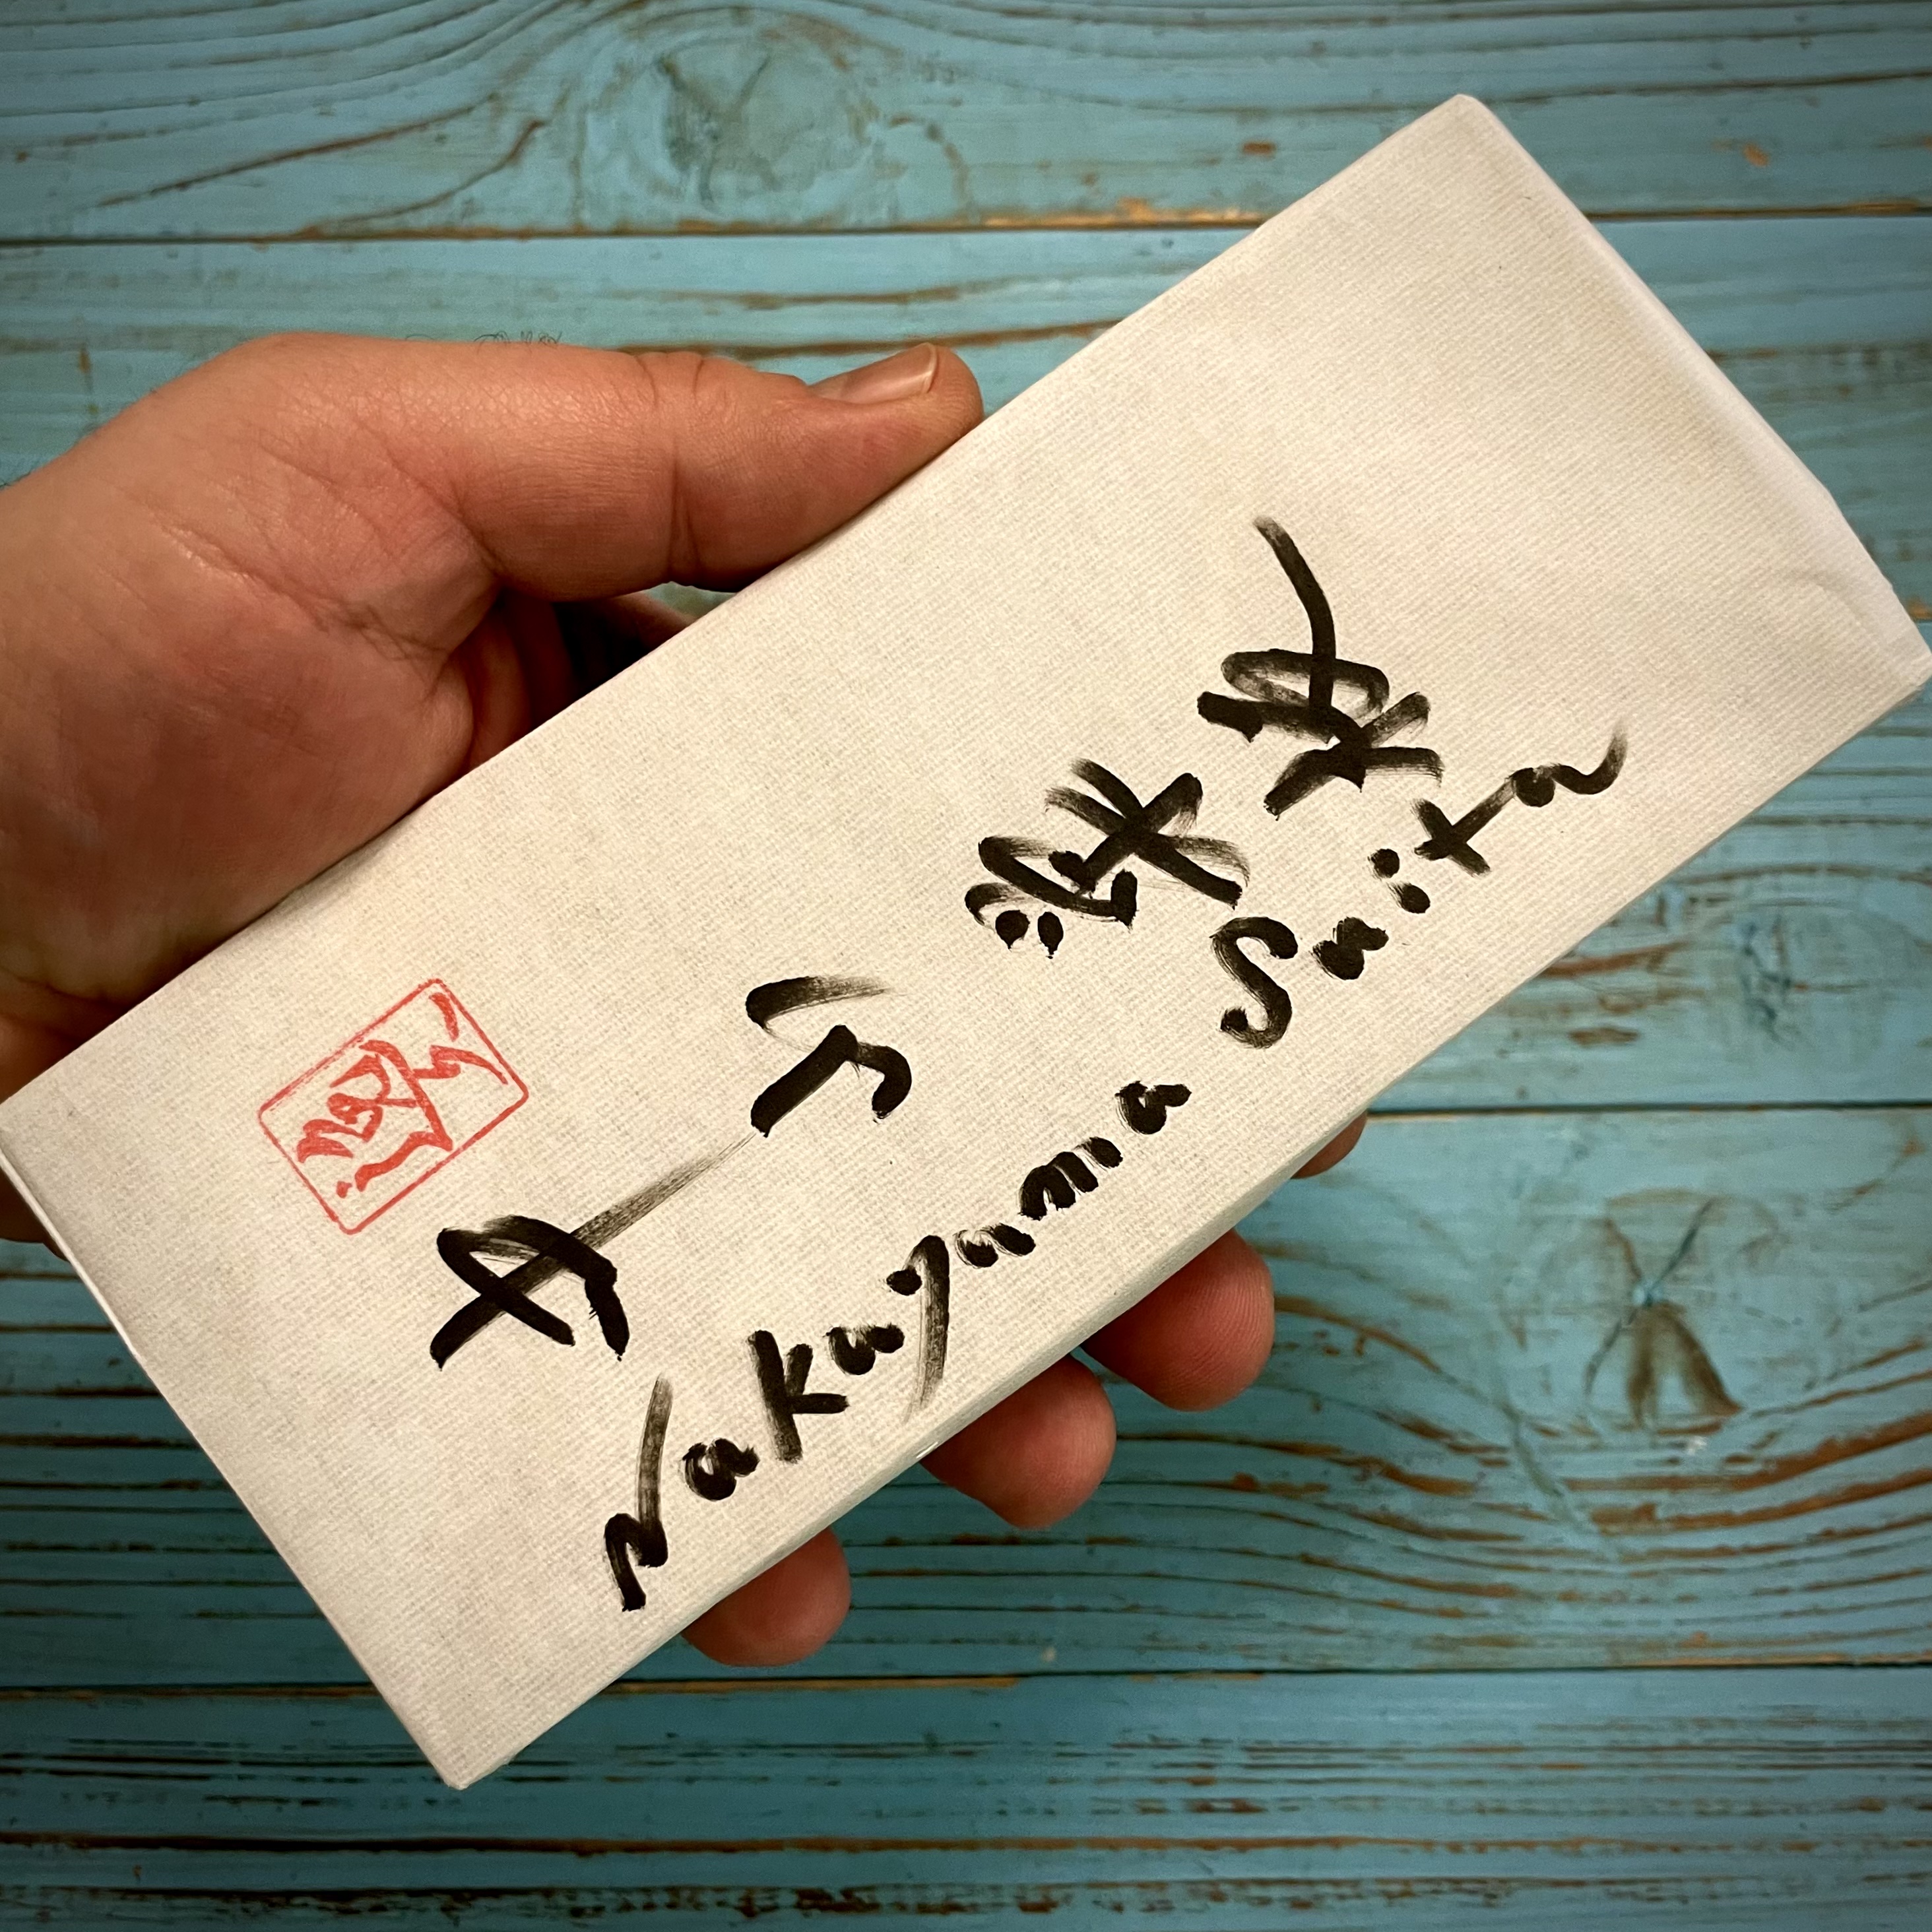 中山 巣板
Nakayama Suita